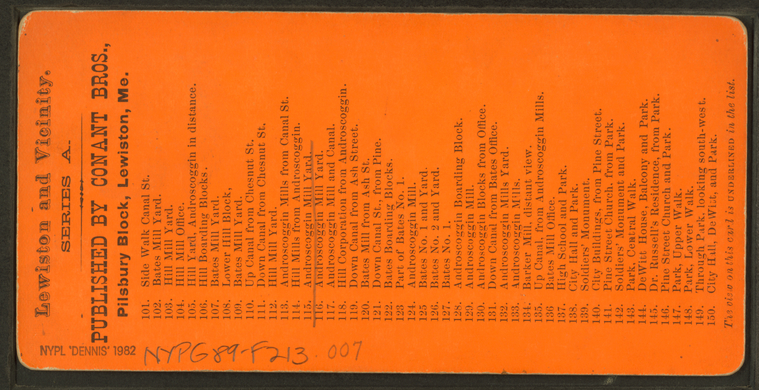 Lewiston and Vicinity.
SERIES A.
PUBLISHED BY CONANT BROS.,
Pilsbury Block, Lewiston, Me.
101. Side Walk Canal St.
102. Bates Mill Yard.
103. Hill Mill Yard.
104. Hill Mill Office.
105. Hill Yard, Androscoggin in distance.
106. Hill Boarding Blocks.
107. Bates Mill Yard.
108. Lower Hill Block,
109. Bates Mill Yard.
110. Up Canal from Chesnut St.
111. Down Canal from Chesnut St.
112. Hill Mill Yard.
113. Androscoggin Mills from Canal St.
114. Hill Mills from Androscoggin.
115. Androscoggin Mill Yard.
116. Androscoggin Mill Yard.
117. Androscoggin Mill and Canal.
118. Hill Corporation from Androscoggin.
119. Down Canal from Ash Street.
120. Bates from Ash St.
121. Down Canal St. from Pine.
122. Bates Boarding Blocks.
123 Part of Bates No. 1.
124. Androscoggin Mill.
125 Bates No. 1 and Yard.
126. Bates No. 1 and Yard.
127. Bates No. 1.
128. Androscoggin Boarding Block.
129. Androscoggin Mill.
130. Androscoggin Blocks from Office.
131. Down Canal from Bates Office.
132. Androscoggin Mills Yard.
133. Androscoggin Mills.
134. Barker Mill, distant view.
135. Up Canal, from Androscoggin Mills.
136 Bates Mill Office.
137. High School and Park.
138. City Hall and Park.
139. Soldiers' Monument.
140. City Buildings, from Pine Street.
141. Pine Street Church, from Park.
142. Soldiers' Monument and Park.
143. Park, Central Walk.
144. DeWitt House, Balcony and Park.
145. Dr. Russell's Residence, from Park.
146. Pine Street Church and Park.
147. Park, Upper Walk.
148. Park, Lower Walk.
149. Through Park, looking south-west.
150. City Hall, DeWitt, and Park.
The view on this card is UNDERLINED in the list.
NYPL 'DENNIS' 1982
NYPG89-F213 007